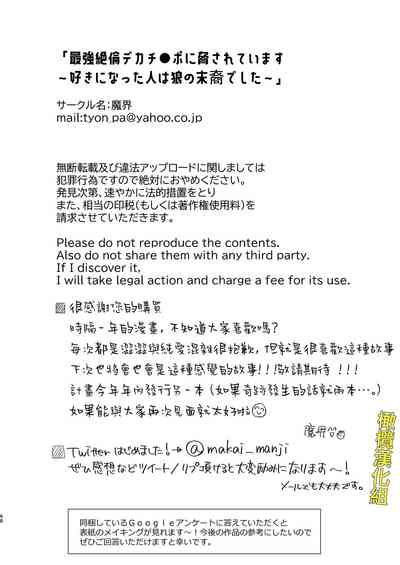 「最強絶倫デカチ●ポに脅されています
～好きになった人は狼の末裔でした～」
サークル名：魔界
mail:tyon_pa@yahoo.co.jp
無断転載及び違法アップロードに関しましては
犯罪行為ですので絶対におやめください。
発見次第、速やかに法的措置をとり
また、相当の印税（もしくは著作権使用料）を
請求させていただきます。
Please do not reproduce the contents.
Also do not share them with any third party.
If I discover it,
I will take legal action and charge a fee for its use.
很感謝您的購買
時隔一年的漫畫，不知道大家喜歡嗎？
每次都是澀澀與純愛混雜很抱歉，但就是很喜歡這種故事
下次也將會也會是這種感覺的故事！！敬請期待！！！
計畫今年年內發行另一本（如果奇跡發生的話就兩本…。）
如果能與大家再次見面就太好啦
魔界
Twitterはじめました！→@makai_manji
ぜひ感想などツイート／リプ頂けると大変励みになります～！
メールでも大丈夫です。
橄欖漢化組
同梱しているGoogleアンケートに答えていただくと
表紙のメイキングが見れます～！今後の作品の参考にしたいので
ぜひご回答いただけますと幸いです。